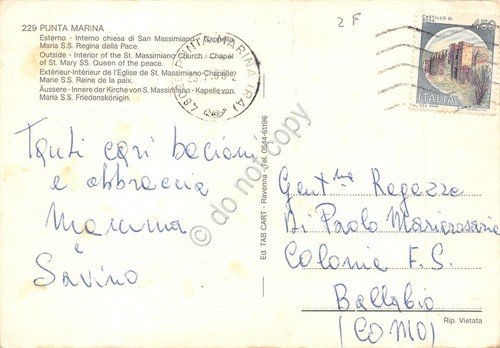 229 PUNTA MARINA
Esterno - Interno chiesa di San Massimiano - Cappella
Maria S.S. Regina della Pace.
Outside - Interior of the St. Massimiano Church - Chapel
of St. Mary SS. Queen of the peace.
Extérieur-Intérieur de l'Eglise de St. Massimiano-Chapelle
Maria S.S. Reine de la paix.
Äussere - Innere der Kirche von S. Massimiano - Kapelle von
Maria S.S. Friedenskönigin.
2 F
PUNTA MARINA (RA)
CASTELLO DI
450
ITALIA
Tanti cari bacioni
e abbraccia
Mamma
e
Savino
Ed. TAB CART - Ravenna - Tel. 0544-61196
© do not copy
Gent.me Ragazze
Di Paolo Mariarosaria
Colonie F.S.
Ballabio
(COMO)
Rip. Vietata